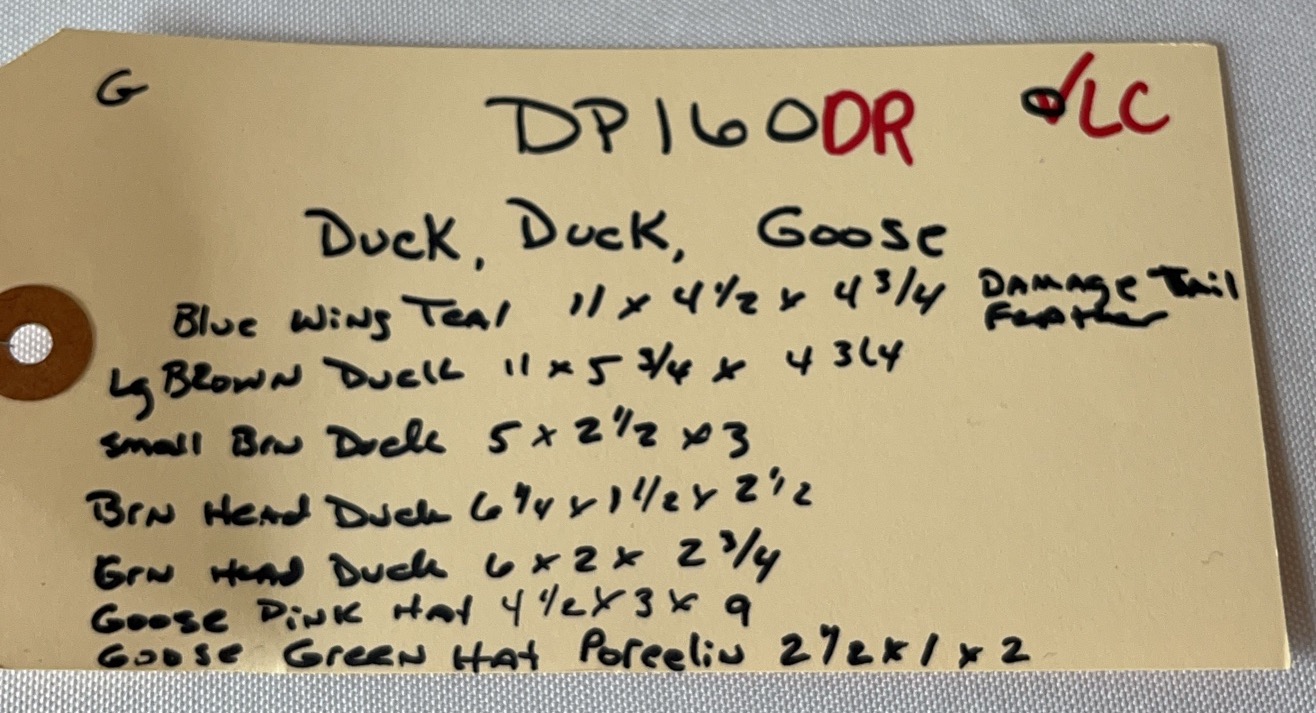 G DP160DR ✓LC
Duck, Duck, Goose
Blue Wing Teal 11 x 4 1/2 x 4 3/4 Damage Tail Feather
Lg Brown Duck 11 x 5 3/4 x 4 3/4
Small Brn Duck 5 x 2 1/2 x 3
Brn Head Duck 6 1/4 x 1 1/2 x 2 1/2
Grn Head Duck 6 x 2 x 2 3/4
Goose Pink Hat 4 1/2 x 3 x 9
Goose Green Hat Porcelin 2 1/2 x 1 x 2